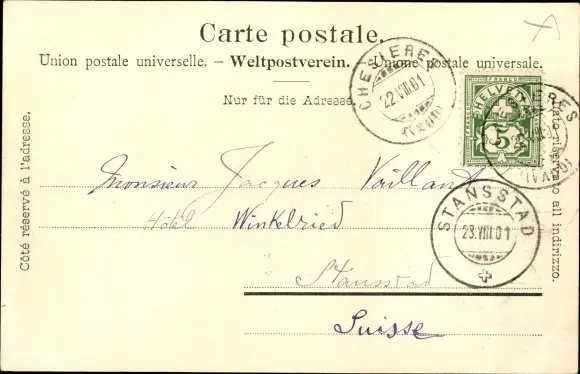 Carte postale.
Union postale universelle. – Weltpostverein. – Unione postale universale.
Nur für die Adresse.
CHESIERES
22.VIII.01
(VAUD)
HELVETIA
FRANCO
5
CHESIERES
(VAUD)
Côté réservé à l'adresse.
Lato riservato all indirizzo.
Monsieur Jacques Vaillant
Hôtel Winkelried
Stansstad
Suisse
STANSSTAD
23.VIII.01